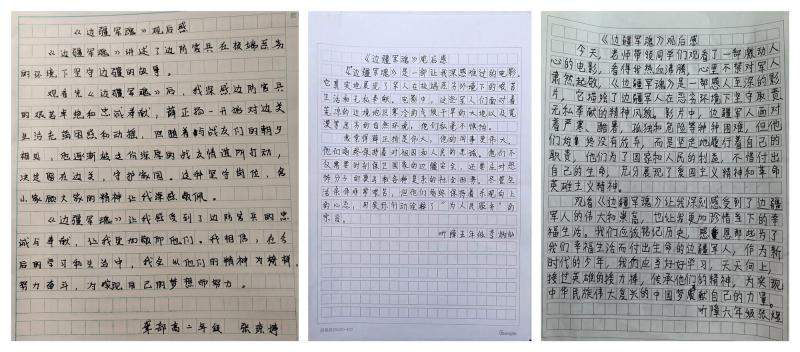 《边疆军魂》观后感
《边疆军魂》讲述了边防官兵在极端恶劣
的环境下坚守边疆的故事。
观看完《边疆军魂》后，我深感边防官兵
的艰苦卓绝和忠诚奉献，薛正强一开始对边关
生活充满困惑和动摇，但随着与战友们的朝夕
相处，他逐渐被这份深厚的战友情谊所打动，
决定留在边关，守护家国。这种坚守岗位，舍
小家顾大家的精神让我深感敬佩。
《边疆军魂》让我感受到了边防官兵的忠
诚与奉献，让我更加敬仰他们。我相信，在今
后的学习和生活中，我会以他们的精神为榜样，
努力奋斗，为实现自己的梦想而努力。
高二年级
《边疆军魂》观后感
《边疆军魂》是一部让我深感难过的电影，
它真实地展现了军人在极端恶劣环境下的艰苦
生活和无私奉献。电影中，这些军人们面对着
荒凉的边境地区寒冷的气候干旱的大地以及荒
漠等恶劣的自然环境，他们从来不懈怠。
我觉得薛正强是伟人，他的同事更伟大，
他们始终保持着对祖国和人民的忠诚。他们不
仅需要时刻保卫国家的边疆安全，还要应对恐
怖分子的袭击和各种复杂的社会因素。尽管生
活条件非常艰苦，但他们始终保持着乐观向上
的心态，用实际行动诠释了"为人民服务"的
宗旨。
听障五年级
《边疆军魂》观后感
今天，老师带领同学们观看了一部激动人
心的电影，看得我热血沸腾，心里不禁对军人
肃然起敬。《边疆军魂》为是一部感人至深的影
片，它描绘了边疆军人在恶劣环境下坚守职责，
无私奉献的精神风貌。影片中，边疆军人面对
着严寒、酷暑、孤独和危险等种种困难，但他
们始终没有放弃，而是坚定地履行着自己的
职责，他们为了国家和人民的利益，不惜付出
自己的生命，充分展现了爱国主义精神和革命
英雄主义精神。
观看《边疆军魂》让我深刻感受到了边疆
军人的伟大和崇高，也让我更加珍惜当下的幸
福生活。我们应该铭记历史，感恩那些为了
我们幸福生活而付出生命的边疆军人，作为新
时代的少年，我们应当好好学习，天天向上，
接过英雄的接力棒，传承他们的精神，为实现
中华民族伟大复兴的中国梦贡献自己的力量。
听障六年级张煜